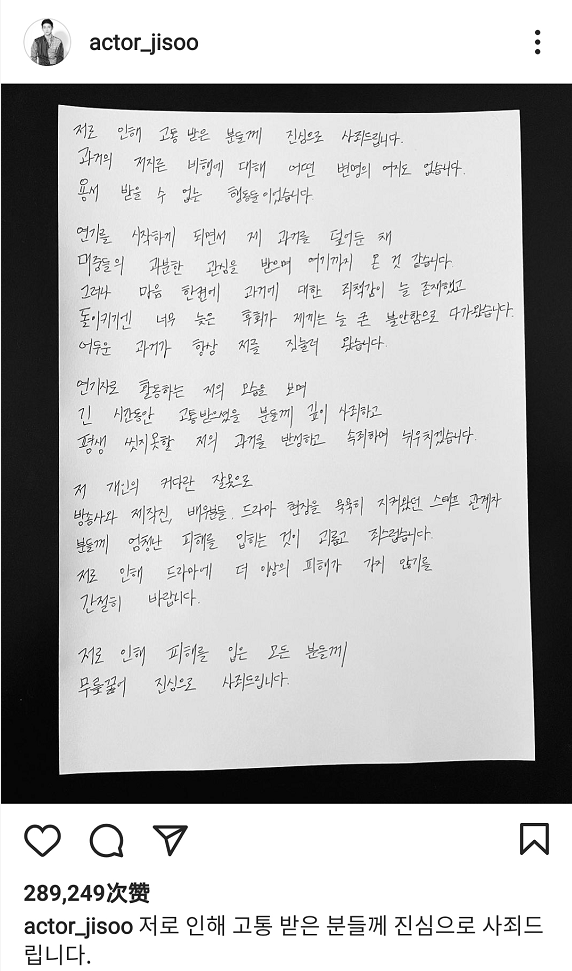 actor_jisoo
저로 인해 고통 받은 분들께 진심으로 사죄드립니다.
과거의 저지른 비행에 대해 어떤 변명의 여지도 없습니다.
용서 받을 수 없는 행동들이었습니다.
연기를 시작하게 되면서 제 과거를 덮어둔 채
대중들의 과분한 관심을 받으며 여기까지 온 것 같습니다.
그러나 마음 한켠에 과거에 대한 죄책감이 늘 존재했고
돌이키기엔 너무 늦은 후회가 제게는 늘 큰 불안함으로 다가왔습니다.
어두운 과거가 항상 저를 짓눌러 왔습니다.
연기자로 활동하는 저의 모습을 보며
긴 시간동안 고통받으셨을 분들께 깊이 사죄하고
평생 씻지못할 저의 과거를 반성하고 속죄하며 뉘우치겠습니다.
저 개인의 커다란 잘못으로
방송사와 제작진, 배우분들, 드라마 현장을 묵묵히 지켜왔던 스태프 관계자
분들께 엄청난 피해를 입히는 것이 괴롭고 죄스럽습니다.
저로 인해 드라마에 더 이상의 피해가 가지 않기를
간절히 바랍니다.
저로 인해 피해를 입은 모든 분들께
무릎꿇어 진심으로 사죄드립니다.
289,249次赞
actor_jisoo 저로 인해 고통 받은 분들께 진심으로 사죄드
립니다.